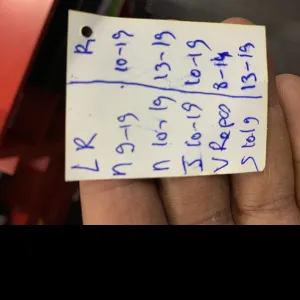 L R R
M 9-19 10-19
M 10-19 13-19
J 10-19 10-19
V Repos 8-14
S 1019 13-19